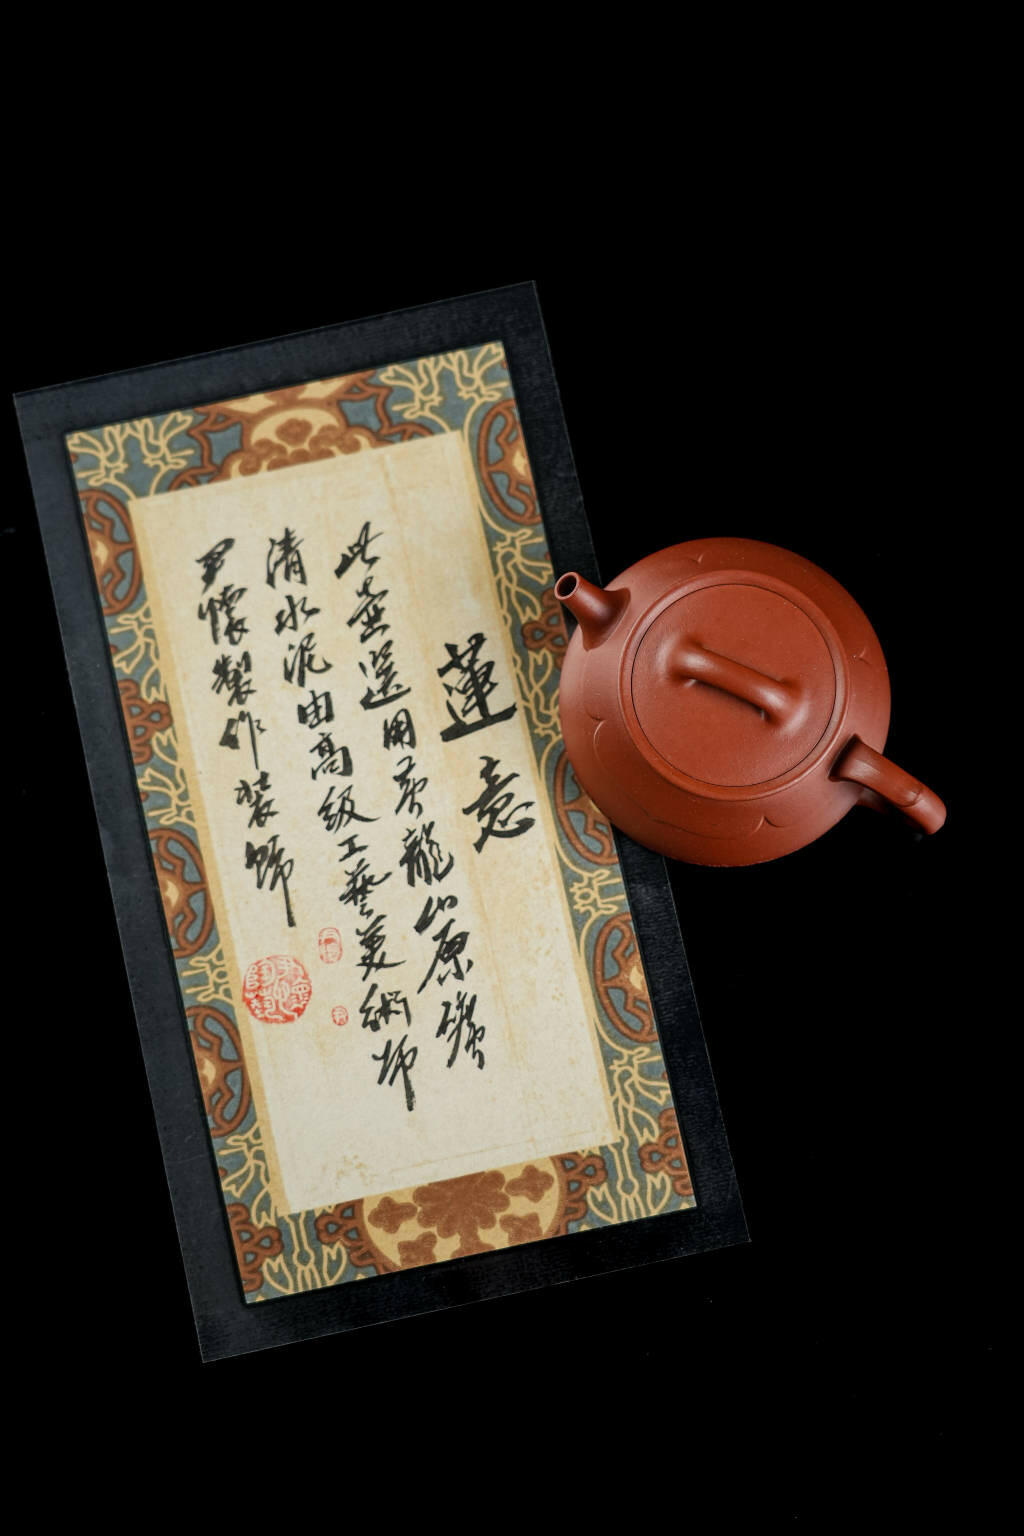 蓮意
此壺選用黃龍山原礦
清水泥由高級工藝美術師
尹懷製作裝飾